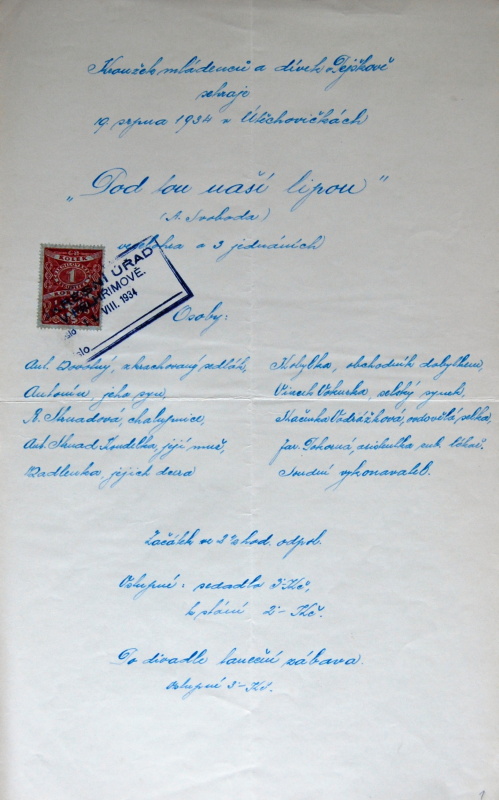 Kroužek mládenců a dívek Dejškově
sehraje
19 srpna 1934 v Útěchovičkách
"Pod tou naší lipou"
(A. Svoboda)
veselohra o 3 jednáních
KOLEK
1
ÚŘAD
VIII. 1934
Osoby:
Ant. Novotný, zkrachovaný sedlák,
Antonín, jeho syn,
B. Skuadová, chalupnice,
Ant. Skuad Koudelka, její muž,
Madlenka, jejich dcera
Kobylka, obchodník dobytkem,
Vincek Vokurka, selský synek,
Mačinka Vodrážková, ovdovělá selka,
Jar. Pokorná, asistentka zub. lékař.
Soudní vykonavatel.
Začátek ve 2 ½ hod. odpol.
Vstupné: sedadlo 3'- Kč,
k stání 2'- Kč.
Po divadle taneční zábava.
Vstupné 3'- Kč.